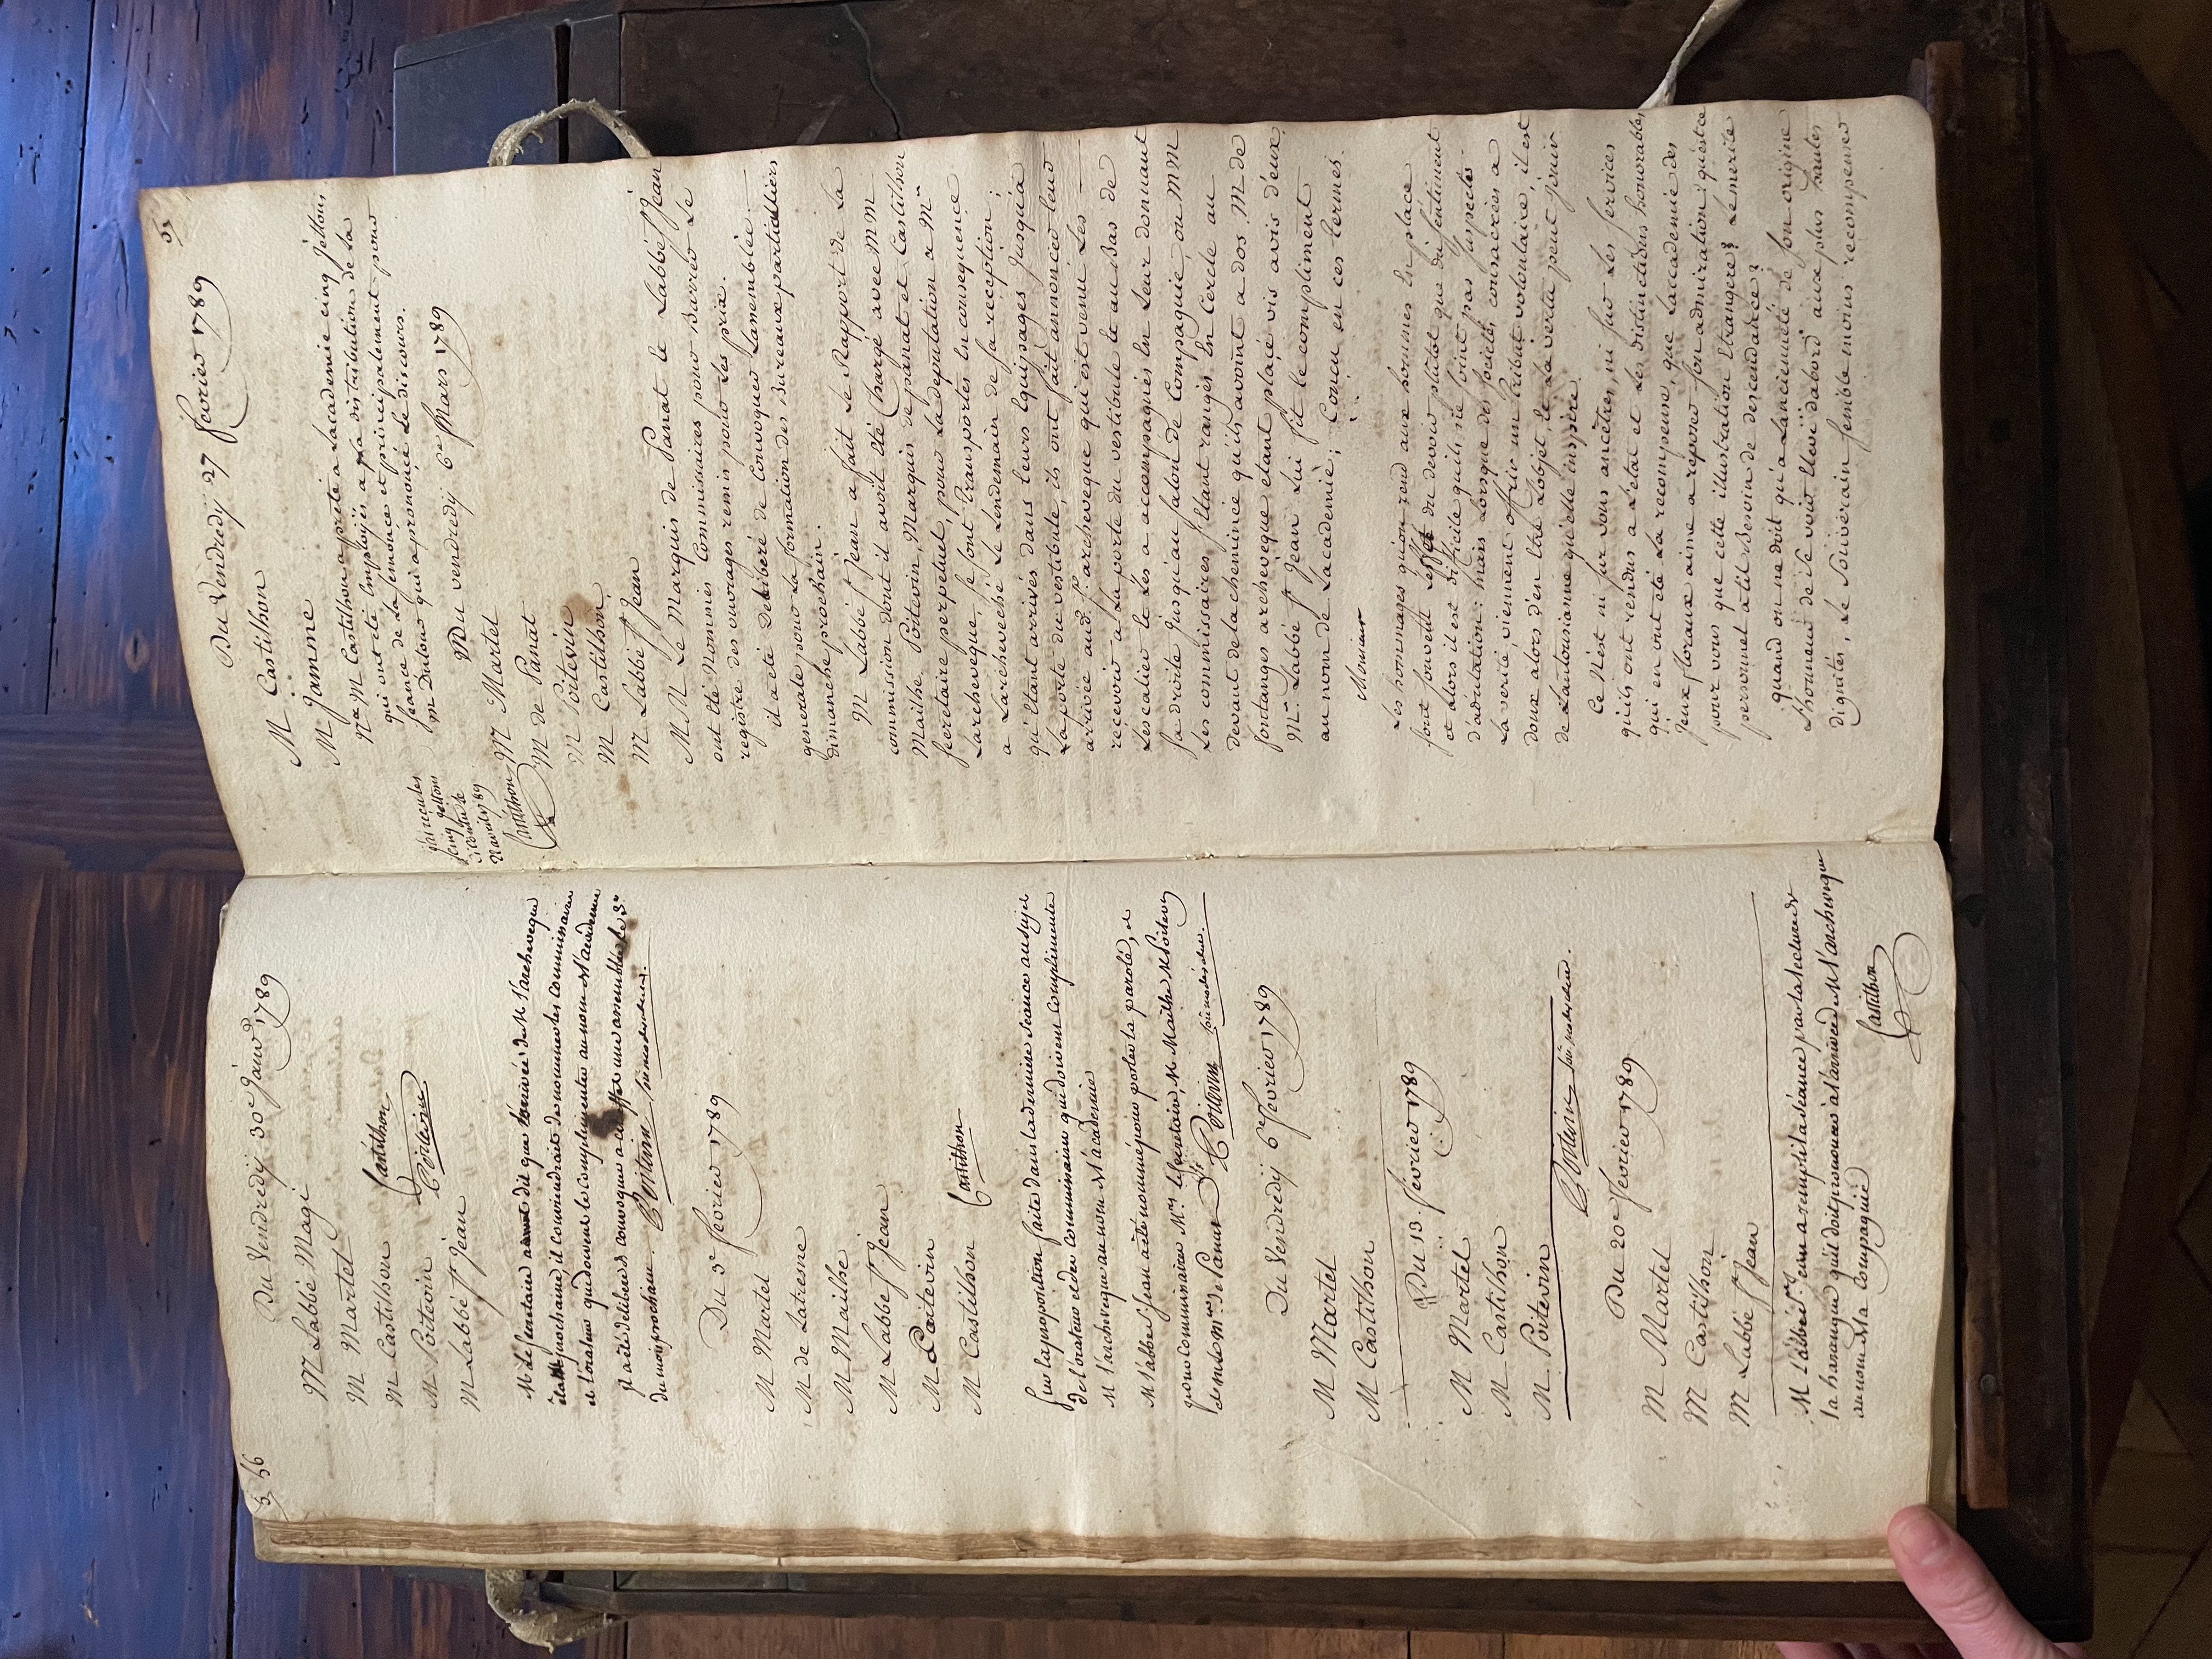 56
Du Vendredy 30e Janvr 1789
M Labbé Magi
M Martel
M Castilhon
Castilhon
M Poitevin
Poitevin
M Labbé St Jean
M le secretaire a dit que l'arrivée de M l'archeveque
étant prochaine, il conviendrait de nommer les commissaires
et l'orateur qui doivent le complimenter au nom de l'academie
Il a été deliberé de convoquer a cet effet une assemblée le 3e
du mois prochain. Poitevin
Du 3e fevrier 1789
M Martel
M de Latresne
M Mailhe
M Labbé St Jean
M Poitevin
M Castilhon
Castilhon
Sur la proposition faite dans la derniere seance au sujet
de l'orateur et des commissaires qui doivent complimenter
M l'archeveque au nom de l'academie
M l'abbé St Jean a été nommé pour porter la parole, et
pour commissaires Mrs le secretaire, M Mailhe M Poitevin
et Mr de Panat Poitevin
Du Vendredy 6e fevrier 1789
M Martel
M Castilhon
Du 13. fevrier 1789
M Martel
M Castilhon
M. Poitevin
Poitevin
Du 20e fevrier 1789
M Martel
M Castilhon
M Labbé St Jean
M l'abbé St Jean a rempli la séance par la lecture de
la harangue qu'il doit prononcer a l'arrivée de M l'archeveque
au nom de la compagnie
Castilhon
Du Vendredy 27 fevrier 1789
M Castilhon
M Jamme
Na M Castilhon a prété a Lacademie cinq Jettons
qui ont été Employés a la distribution de La
seance de La semonce et principalement pour
M Dutour qui a prononcé Le discours.
j'ai reçu les
cinq jettons
ci contre le
17 avril 1789
Castilhon
Du vendredy 6e Mars 1789
M Martel
M de Panat
M Poitevin
M Castilhon
M Labbé St Jean
M M Le Marquis de Panat et Labbé St Jean
ont été Nommés Commissaires pour Barrer Le
registre des ouvrages remis pour Les prix.
il a été Deliberé de Convoquer Lassemblée
generale pour La formation des Bureaux particuliers
dimanche prochain.
M Labbé St Jean a fait Le Rapport de La
commission dont il avoit été Chargé avec M M
Mailhe Poitevin, Marquis de panat et Castilhon
secretaire perpetuel, pour La deputation a Mr
Larcheveque, se sont transportés En consequence
a Larcheveché Le Lendemain de sa reception;
qu'Etant arrivés dans Leurs Equipages Jusqu'a
La porte du vestibule, ils ont fait annoncer Leur
arrivée aud. S. archeveque qui est venu Les
recevoir a La porte du vestibule et au Bas de
L'escalier et Les a accompagnés En Leur donnant
La droite Jusqu'au salon de Compagnie, ou M M
Les commissaires s'Etant rangés En Cercle au
devant de la cheminée qu'ils avoint a dos, M de
fontanges archevêque etant placé vis avis d'eux,
Mr. Labbé St Jean Lui fit Le compliment
au nom de Lacademie; Concu en ces termes.
Monsieur
Les hommages qu'on rend aux hommes En place
sont souvent L'effet du devoir plutot que du sentiment
et alors il est difficile quils ne soint pas suspects
d'adulation: mais Lorsque des societés consacrées a
La verité, viennent offrir un tribut volontaire, il est
doux alors d'en Etre Lobjet et La vertu peut jouir
de Lantousiasme qu'elle inspire.
Ce N'est ni sur vos ancêtres, ni sur Les services
qu'ils ont rendus a L'etat et Les distinctions honorables
qui en ont été La recompense, que Lacademie des
Jeux floraux aime a reposer son admiration: qu'est ce
pour vous que cette illustration Etrangere? Le merite
personnel a t'il Besoin de descendance?
quand on ne doit qu'a Lancienneté de son origine
L'honneur de se voir Elevé dabord aux plus hautes
dignités, Le Souverain semble moins recompenser